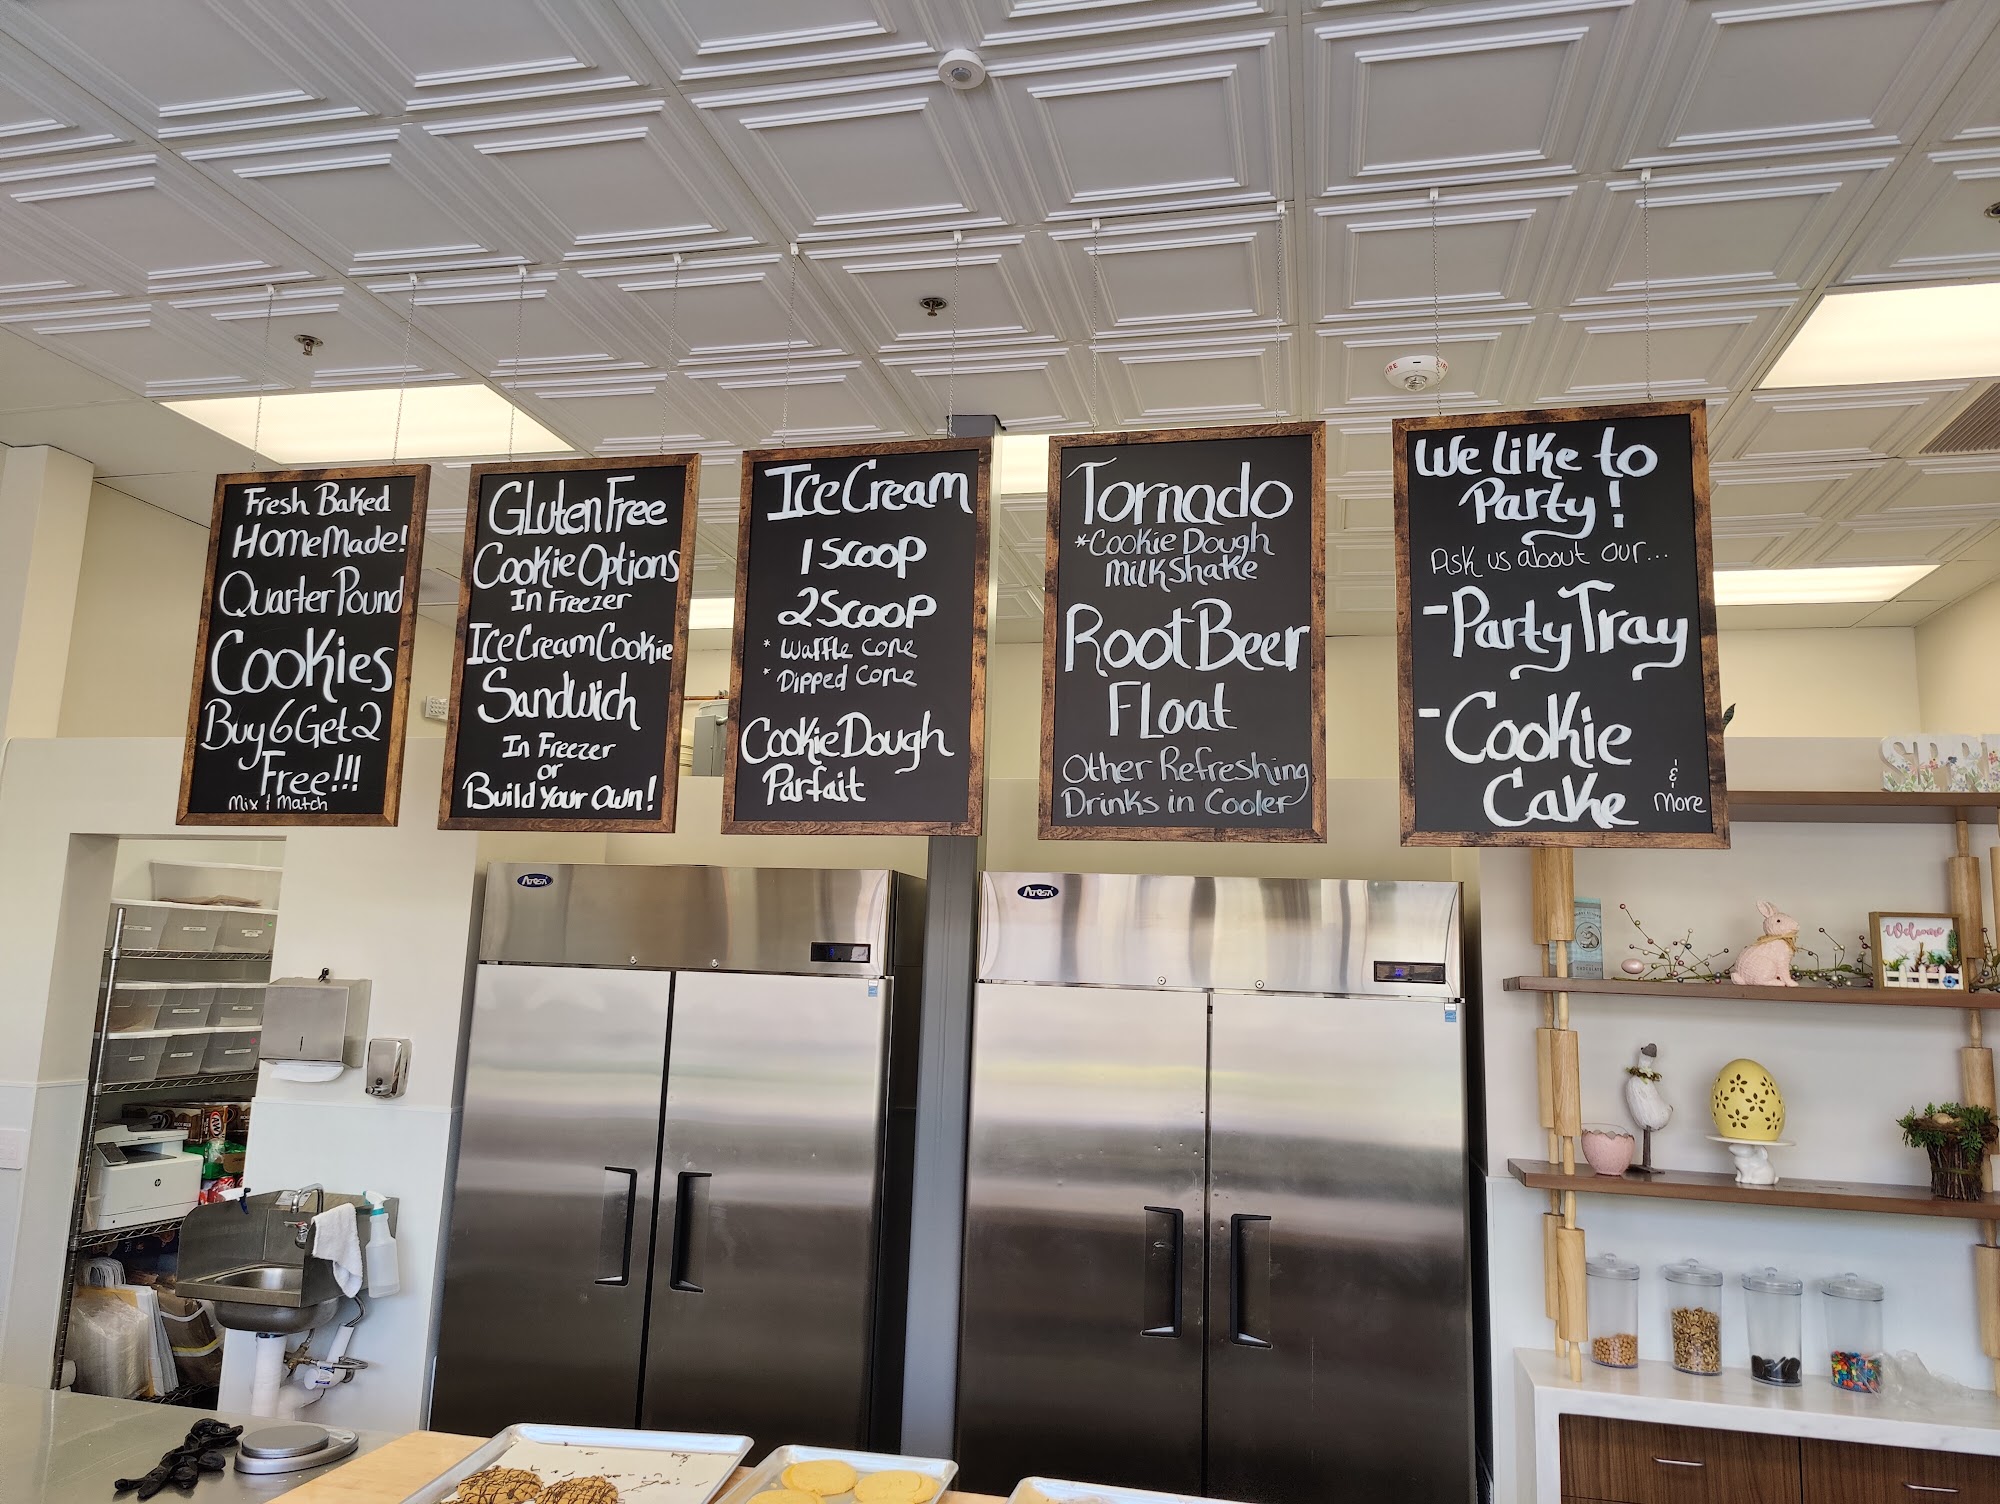 Fresh Baked
HomeMade!
Quarter Pound
Cookies
Buy 6 Get 2
Free!!!
Mix & Match
Gluten Free
Cookie Options
In Freezer
Ice Cream Cookie
Sandwich
In Freezer
or
Build Your Own!
Ice Cream
1 Scoop
2 Scoop
* Waffle Cone
* Dipped Cone
Cookie Dough
Parfait
Tornado
*Cookie Dough
Milkshake
Root Beer
Float
Other Refreshing
Drinks in Cooler
We like to
Party!
Ask us about our...
- Party Tray
- Cookie
Cake
&
More
Atosa
Atosa
Welcome
FIRE
A&W
hp